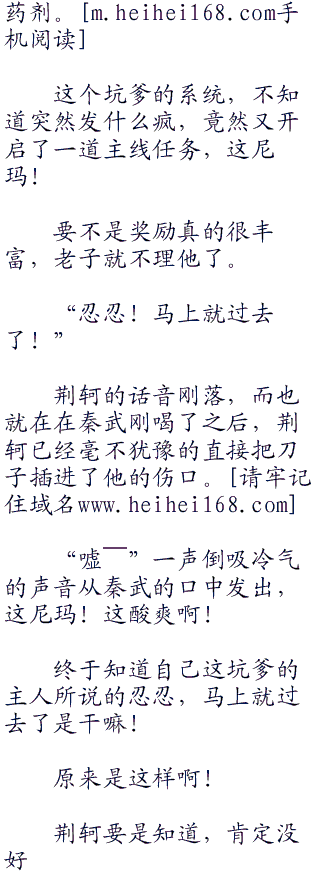 药剂。[m.heihei168.com手
机阅读]
这个坑爹的系统，不知
道突然发什么疯，竟然又开
启了一道主线任务，这尼
玛！
要不是奖励真的很丰
富，老子就不理他了。
“忍忍！马上就过去
了！”
荆轲的话音刚落，而也
就在在秦武刚喝了之后，荆
轲已经毫不犹豫的直接把刀
子插进了他的伤口。[请牢记
住域名www.heihei168.com]
“嘘——”一声倒吸冷气
的声音从秦武的口中发出，
这尼玛！这酸爽啊！
终于知道自己这坑爹的
主人所说的忍忍，马上就过
去了是干嘛！
原来是这样啊！
荆轲要是知道，肯定没
好